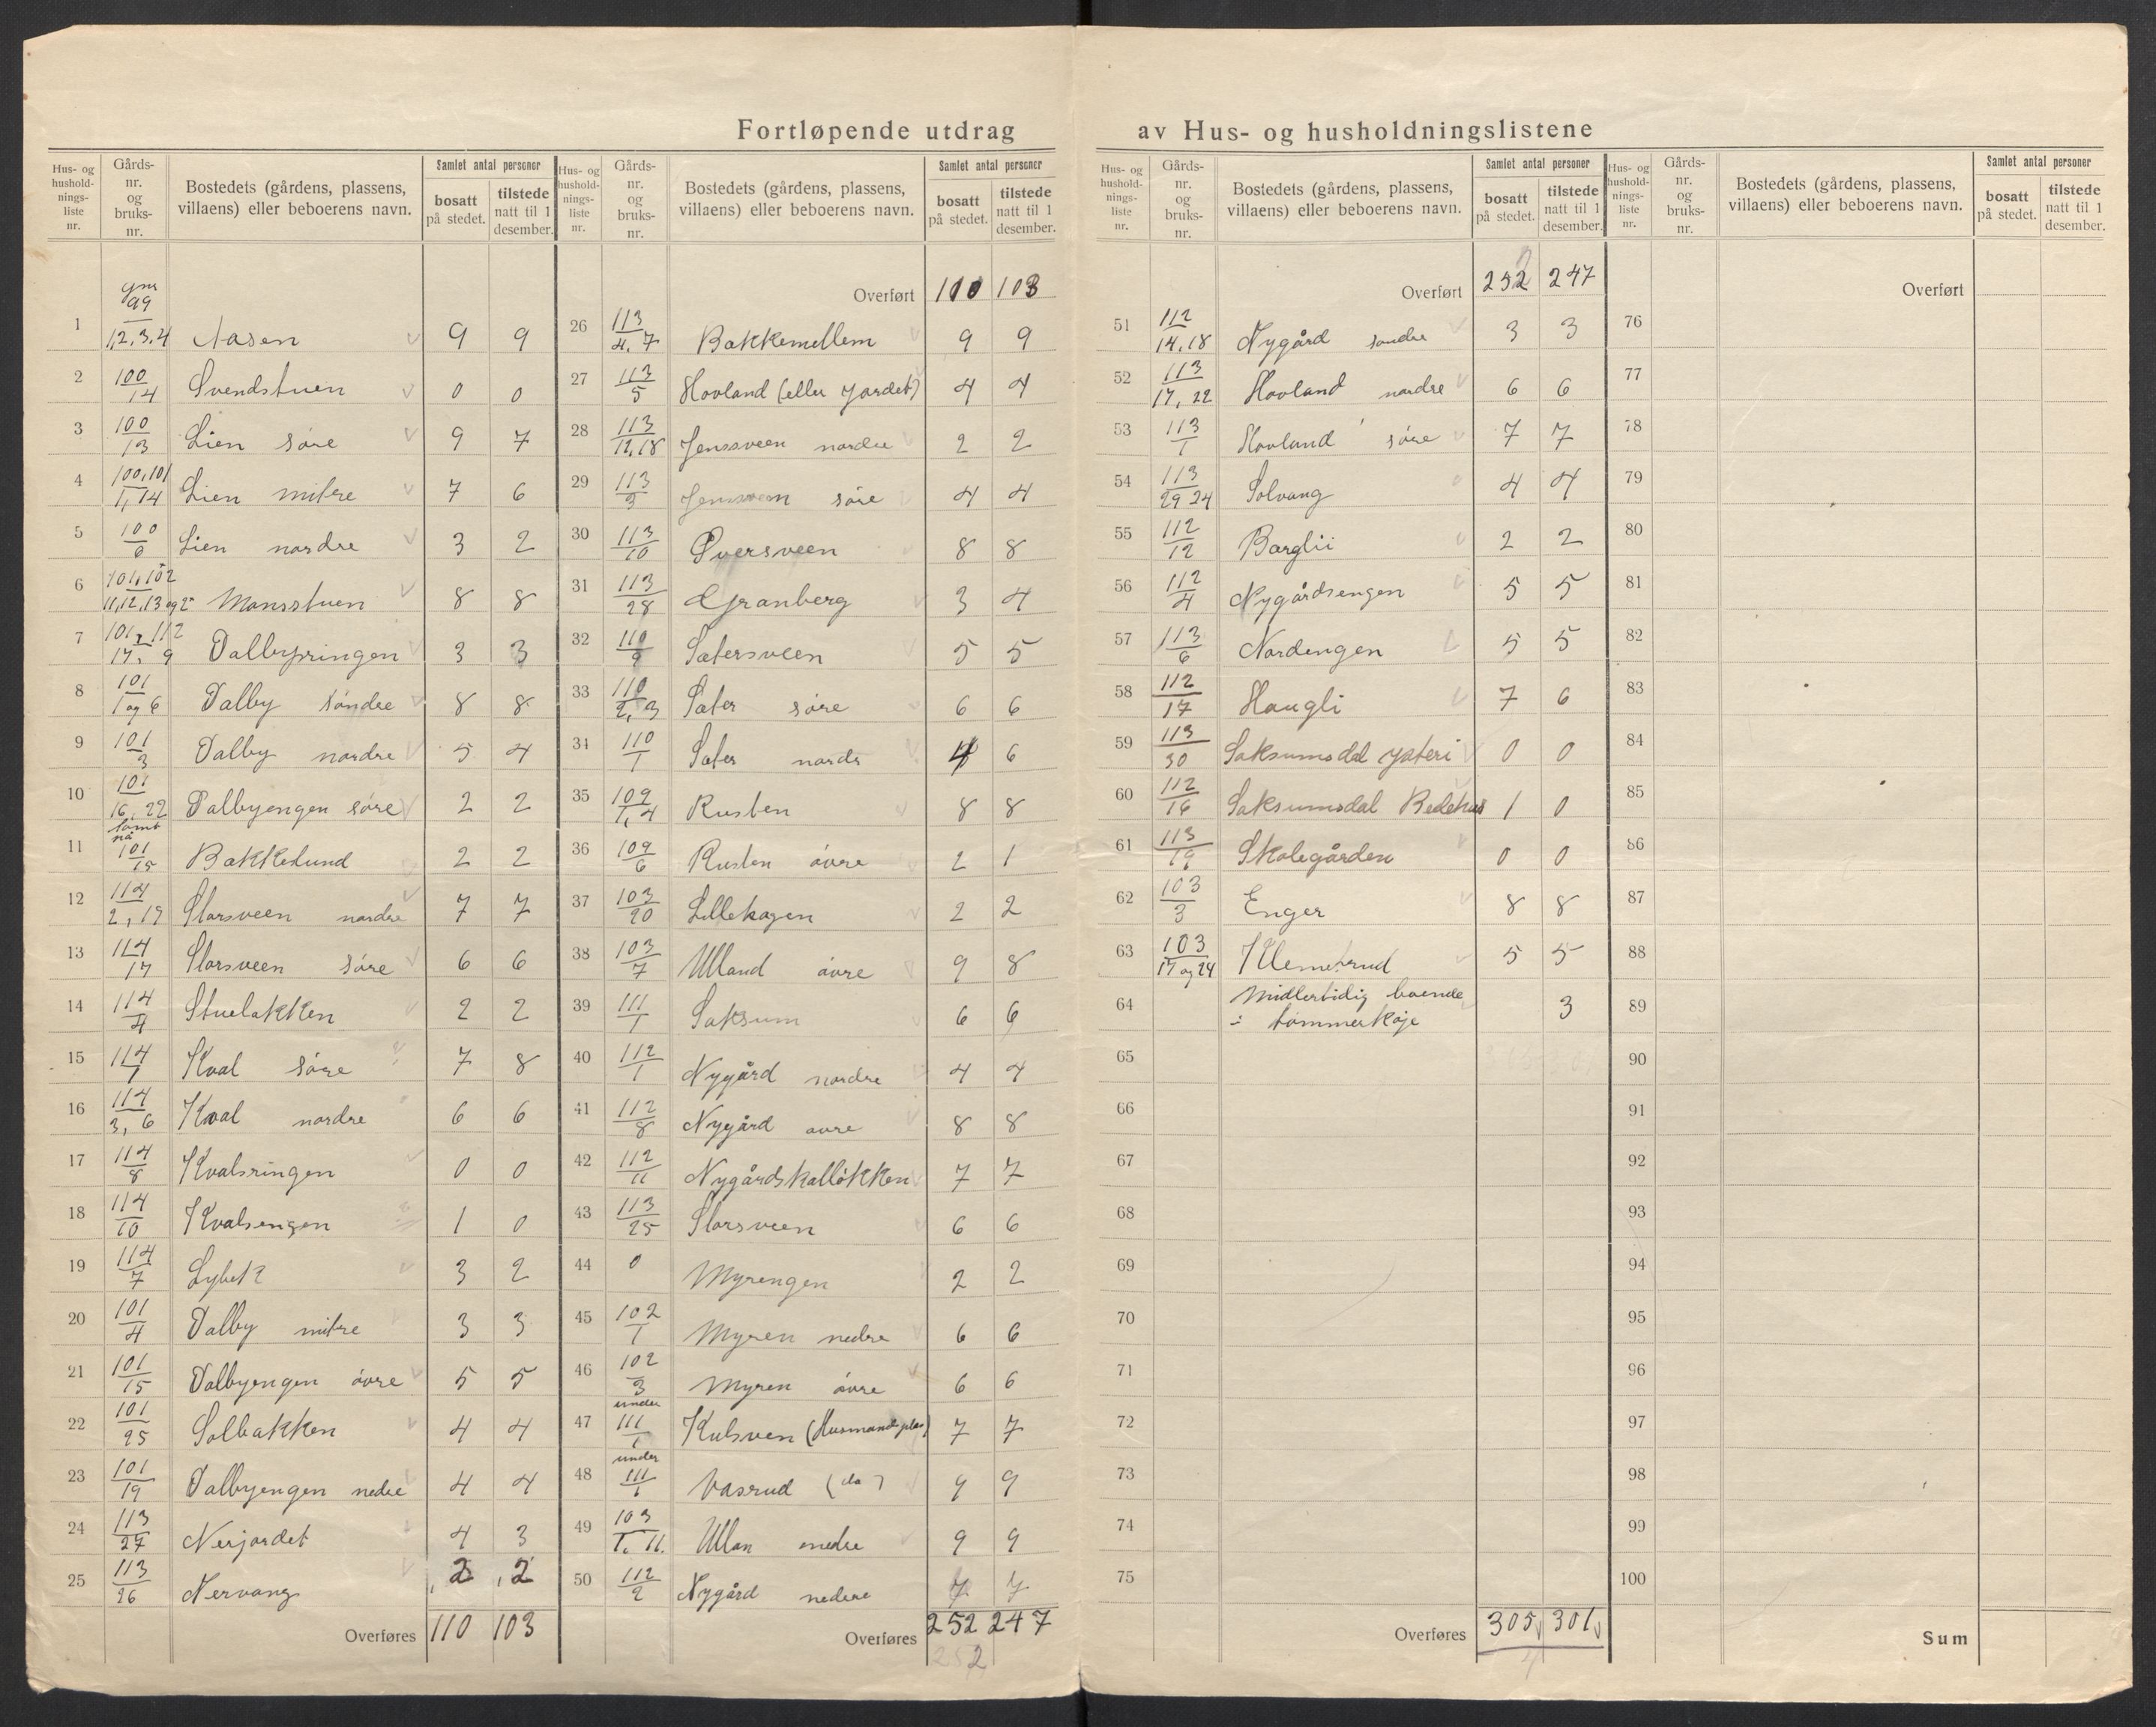 Fortløpende utdrag av Hus- og husholdningslistene
Hus- og hushold-nings-liste nr. | Gårds-nr. og bruks-nr. | Bostedets (gårdens, plassens, villaens) eller beboerens navn. | Samlet antal personer | bosatt på stedet. | tilstede natt til 1 desember.
1 gnr 99/1,2,3,4 Aasen 9 9
2 100/14 Svendstuen 0 0
3 100/13 Lien søre 9 7
4 100,101/1,14 Lien mitre 7 6
5 100/6 Lien nordre 3 2
6 101,102/11,12,13 og 2 Monsstuen 8 8
7 101,112/17, 9 Dalbyringen 3 3
8 101/1 og 6 Dalby søndre 8 8
9 101/3 Dalby nordre 5 4
10 101/16,22 Dalbyengen søre 2 2
11 101/15 Bakkelund 2 2
12 114/2,19 Storsveen nordre 7 7
13 114/17 Storsveen søre 6 6
14 114/4 Stuelakken 2 2
15 114/1 Kval søre 7 8
16 114/3, 6 Kval nordre 6 6
17 114/8 Kvalsringen 0 0
18 114/10 Kvalsengen 1 0
19 114/7 Lybek 3 2
20 101/4 Dalby mitre 3 3
21 101/15 Dalbyengen övre 5 5
22 101/25 Solbakken 4 4
23 101/19 Dalbyengen nedre 4 4
24 113/27 Nerjordet 4 3
25 113/26 Nervang 2 2
Overføres 110 103
Hus- og hushold-nings-liste nr. | Gårds-nr. og bruks-nr. | Bostedets (gårdens, plassens, villaens) eller beboerens navn. | Samlet antal personer | bosatt på stedet. | tilstede natt til 1 desember.
Overført 110 103
26 113/4, 7 Bakkemellem 9 9
27 113/5 Hovland (eller Jordet) 4 4
28 113/12,18 Jenssveen nordre 2 2
29 113/3 Jenssveen søre 4 4
30 113/10 Oversveen 8 8
31 113/28 Granberg 3 4
32 110/9 Satersveen 5 5
33 110/2, 3 Sater søre 6 6
34 110/1 Sater nordr 4 6
35 109/1, 4 Rusten 8 8
36 109/6 Rusten övre 2 1
37 103/20 Lillehagen 2 2
38 103/7 Ulland övre 9 8
39 111/1 Saksum 6 6
40 112/1 Nygård nordre 4 4
41 112/8 Nygård övre 8 8
42 112/11 Nygårdskalløkken 7 7
43 113/25 Storsveen 6 6
44 0 Myrengen 2 2
45 102/1 Myren nedre 6 6
46 102/3 Myren övre 6 6
47 under 111/1 Kulsven (Husmandsplas) 7 7
48 under 111/1 Vasrud (do) 9 9
49 103/1, 11. Ullan nedre 9 9
50 112/2 Nygård nedere 7 7
Overføres 252 247
252
Hus- og hushold-nings-liste nr. | Gårds-nr. og bruks-nr. | Bostedets (gårdens, plassens, villaens) eller beboerens navn. | Samlet antal personer | bosatt på stedet. | tilstede natt til 1 desember.
Overført 252 247
51 112/14,18 Nygård søndre 3 3
52 113/17, 22 Hovland nordre 6 6
53 113/1 Hovland søre 7 7
54 113/29 24 Solvang 4 4
55 112/12 Barglii 2 2
56 112/4 Nygårdsengen 5 5
57 113/6 Nordengen 5 5
58 112/17 Haugli 7 6
59 113/30 Saksumsdal ysteri 0 0
60 112/16 Saksumsdal Bedehus 1 0
61 113/19 Skolegården 0 0
62 103/3 Enger 8 8
63 103/17 og 24 Klemetsrud 5 5
64 Midlertidig boende i tømmerkoje 3
65
66
67
68
69
70
71
72
73
74
75
Overføres 305 301
Hus- og hushold-nings-liste nr. | Gårds-nr. og bruks-nr. | Bostedets (gårdens, plassens, villaens) eller beboerens navn. | Samlet antal personer | bosatt på stedet. | tilstede natt til 1 desember.
Overført
76
77
78
79
80
81
82
83
84
85
86
87
88
89
90
91
92
93
94
95
96
97
98
99
100
Sum